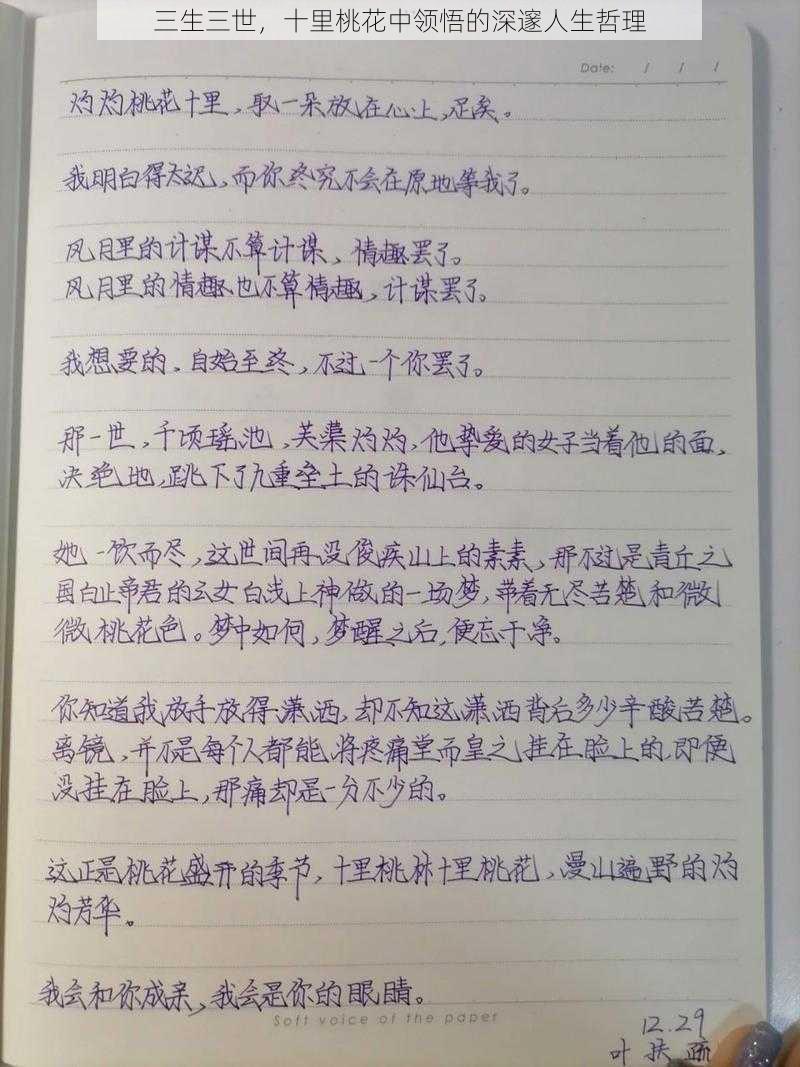 三生三世，十里桃花中领悟的深邃人生哲理
Date: / / /
灼灼桃花十里，取一朵放在心上，足矣。
我明白得太迟，而你终究不会在原地等我了。
风月里的计谋不算计谋，情趣罢了。
风月里的情趣也不算情趣，计谋罢了。
我想要的，自始至终，不过一个你罢了。
那一世，千顷瑶池，芙蕖灼灼，他挚爱的女子当着他的面，
决绝地，跳下了九重垒土的诛仙台。
她一饮而尽，这世间再没俊疾山上的素素，那不过是青丘之
国白止帝君的幺女白浅上神做的一场梦，带着无尽苦楚和微
微桃花色。梦中如何，梦醒之后，便忘干净。
你知道我放手放得潇洒，却不知这潇洒背后多少辛酸苦楚。
离镜，并不是每个人都能将疼痛堂而皇之挂在脸上的，即便
没挂在脸上，那痛却是一分不少的。
这正是桃花盛开的季节，十里桃林十里桃花，漫山遍野的灼
灼芳华。
我会和你成亲，我会是你的眼睛。
Soft voice of the paper
12.29
叶扶疏